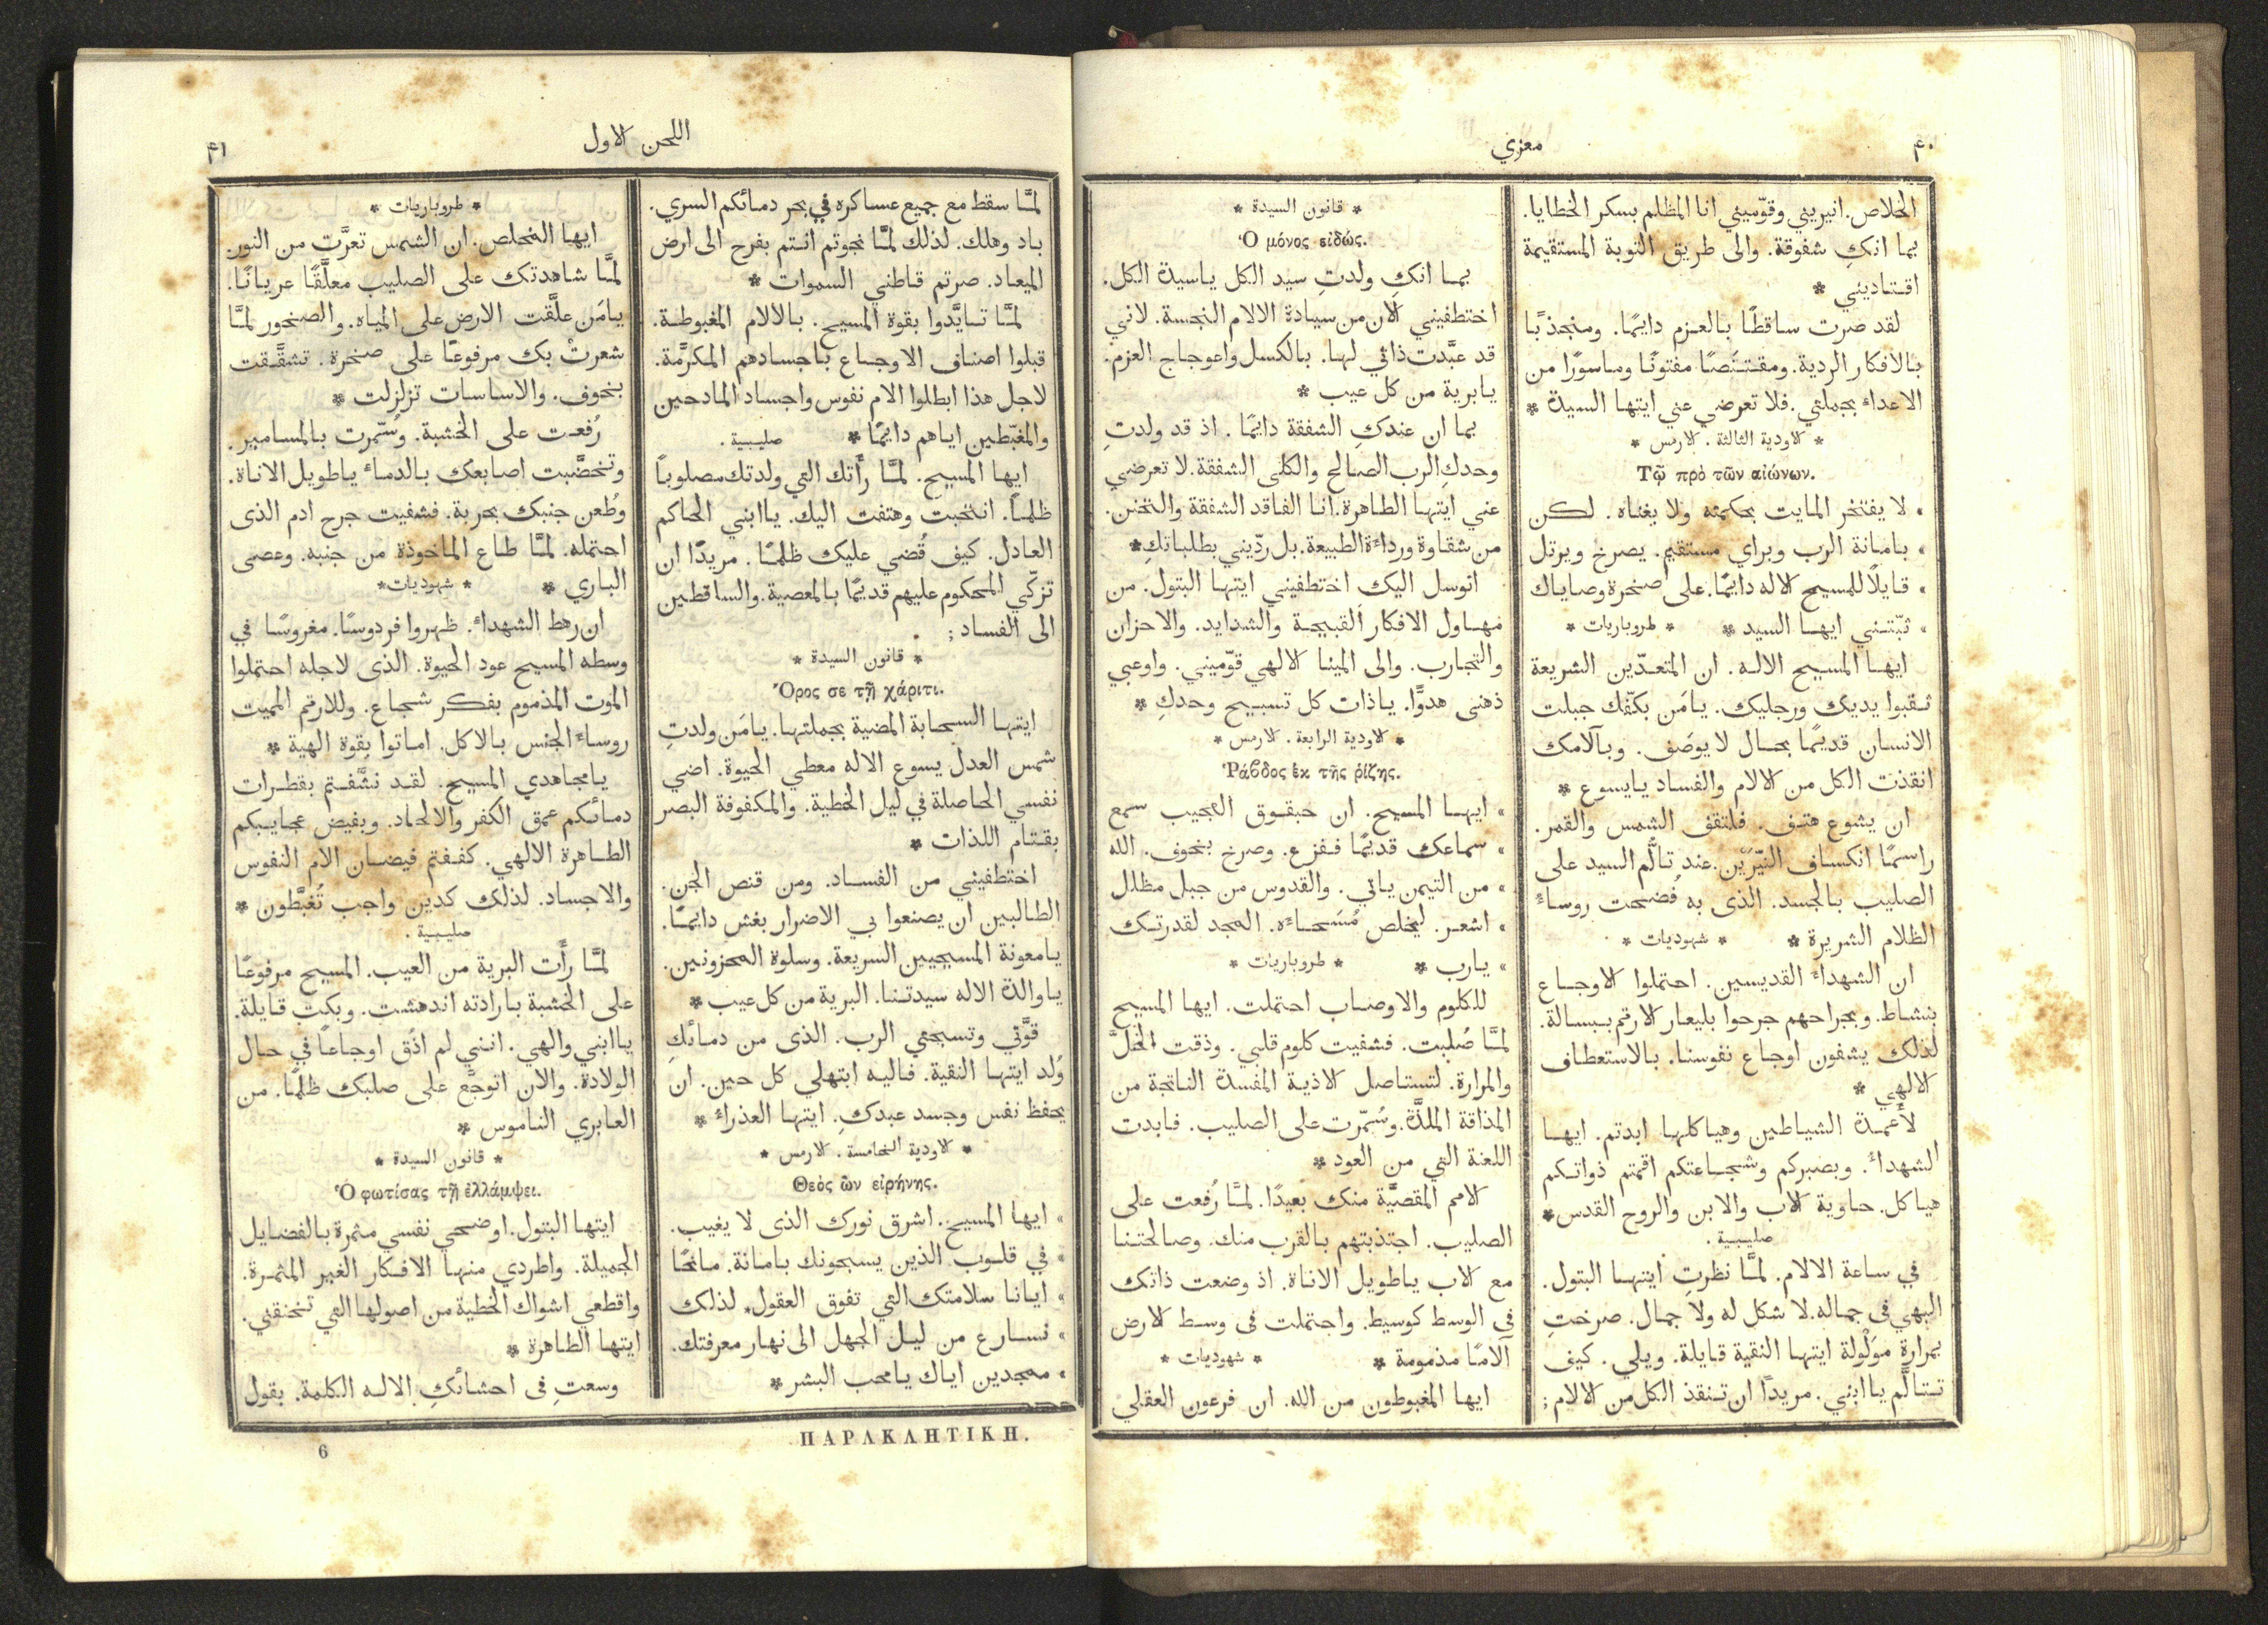 ٤٠
معزي
الخلاص. انيريني وقوّميني انا المظلم بسكر الخطايا.
بما انكِ شفوقة. والى طريق التوبة المستقيمة
اقتاديني *
لقد صرت ساقطًا بالعزم دايمًا. ومنجذبًا
بالافكار الردية. ومقتنَصًا مفتونًا وماسورًا من
الاعداء بجملتي. فلا تعرضي عني ايتها السيدة *
* الاودية الثالثة. الارمس *
Τῷ πρὸ τῶν αἰώνων.
» لا يفتخر المايت بحكمته ولا بغناه. لكن
» بامانة الرب وبراي مستقيم. يصرخ ويرتل
» قايلًا للمسيح الاله دايمًا. على صخرة وصاياك
» ثبّتني ايها السيد * * طروباريات *
ايها المسيح الاله. ان المتعدّين الشريعة
ثقبوا يديك ورجليك. يامَن بكفّك جبلت
الانسان قديمًا بحال لا يوصَف. وبآلامك
انقذت الكل من الالام والفساد يايسوع *
ان يشوع هتف. فلتقف الشمس والقمر.
راسمًا انكساف النيّرَيْن. عند تالّم السيد على
الصليب بالجسد. الذى به فُضحت روساءُ
الظلام الشريرة * * شهوديات *
ان الشهداءَ القديسين. احتملوا الاوجاع
بنشاط. وبجراحهم جرحوا بليعار الارقم ببسالة.
لذلك يشفون اوجاع نفوسنا. بالاستعطاف
الالهي *
لأعمدة الشياطين وهياكلها ابدتم. ايها
الشهداءُ. وبصبركم وشجاعتكم اقمتم ذواتكم
هياكل. حاوية الاب والابن والروح القدس *
صليبية.
في ساعة الالام. لمَّا نظرتِ ايتها البتول.
البهي فى جماله. لا شكل له ولا جمال. صرختِ
بمرارةٍ مَوْلولة ايتها النقية قايلة. ويلي. كيف
تتالَّم يا ابني. مريدًا ان تنقذ الكل من الالام ؛
* قانون السيدة *
Ὁ μόνος εἰδώς.
بما انكِ ولدتِ سيد الكل ياسيدة الكل.
اختطفيني الان من سيادة الالام النجسة. لاني
قد عبَّدت ذاتي لها. بالكسل واعوجاج العزم.
يابرية من كل عيب *
بما ان عندكِ الشفقة دايمًا. اذ قد ولدتِ
وحدكِ الرب الصالح والكلى الشفقة. لا تعرضي
عني ايتها الطاهرة. انا الفاقد الشفقة والتحنن.
من شقاوة ورداءة الطبيعة. بل ردّيني بطلباتكِ *
اتوسل اليك اختطفيني ايتها البتول. من
مهاول الافكار القبيحة والشدايد. والاحزان
والتجارب. والى المينا الالهي قوّميني. واوعبي
ذهنى هدوًّا. ياذات كل تسبيح وحدكِ *
* الاودية الرابعة. الارمس *
Ῥάβδος ἐκ τῆς ῥίζης.
» ايها المسيح. ان حبقوق العجيب سمع
» سماعك قديمًا ففزع. وصرخ بخوف. الله
» من التيمن ياتي. والقدوس من جبل مظلل
» اشعر. ليخلص مُسَحاءه. المجد لقدرتك
» يارب * * طروباريات *
للكلوم والاوصاب احتملت. ايها المسيح
لمَّا صُلبت. فشفيت كلوم قلبي. وذقت الخلَّ
والمرارة. لتستاصل الاذية المفسدة الناتجة من
المذاقة الملذَّة. وسُمّرت على الصليب. فابدت
اللعنة التي من العود *
الامم المقصيَّة منك بعيدًا. لمَّا رُفعت على
الصليب. اجتذبتهم بالقرب منك. وصالحتنا
مع الاب ياطويل الاناة. اذ وضعت ذاتك
فى الوسط كوسيط. واحتملت فى وسط الارض
آلامًا مذمومة * * شهوديات *
ايها المغبوطون من الله. ان فرعون العقلي
اللحن الاول
٤١
لمَّا سقط مع جميع عساكره في بحر دمائكم السري.
باد وهلك. لذلك لمَّا نجوتم انتم بفرح الى ارض
الميعاد. صرتم قاطني السموات *
لمَّا تايَّدوا بقوة المسيح. بالالام المغبوطة.
قبلوا اصناف الاوجاع باجسادهم المكرَّمة.
لاجل هذا ابطلوا الام نفوس واجساد المادحين
والمغبّطين اياهم دايمًا * صليبية.
ايها المسيح. لمَّا رأَتك التي ولدتك مصلوبًا
ظلمًا. انتحبت وهتفت اليك. ياابني الحاكم
العادل. كيف قُضي عليك ظلمًا. مريدًا ان
تزكّي المحكوم عليهم قديمًا بالمعصية. والساقطين
الى الفساد ؛
* قانون السيدة *
Ὄρος σε τῇ χάριτι.
ايتها السحابة المضية بجملتها. يامَن ولدتِ
شمس العدل يسوع الاله معطي الحيوة. اضي
نفسي الحاصلة في ليل الخطية. والمكفوفة البصر
بقتام اللذات *
اختطفيني من الفساد. ومن قنص الجن.
الطالبين ان يصنعوا بي الاضرار بغش دايمًا.
يامعونة المسيحيين السريعة. وسلوة المحزونين.
ياوالدة الاله سيدتنا. البرية من كل عيب *
قوَّتي وتسبحتي الرب. الذى من دمائكِ
وُلد ايتها النقية. فاليه ابتهلي كل حين. ان
يحفظ نفس وجسد عبدكِ. ايتها العذراءُ *
* الاودية الخامسة. الارمس *
Θεὸς ὢν εἰρήνης.
» ايها المسيح. اشرق نورك الذى لا يغيب.
» في قلوب الذين يسبحونك بامانة. مانحًا
» ايانا سلامتك التي تفوق العقول. لذلك
» نسارع من ليل الجهل الى نهار معرفتك.
» ممجدين اياك يامحب البشر *
* طروباريات *
ايها المخلص. ان الشمس تعرَّت من النور.
لمَّا شاهدتك على الصليب معلَّقًا عريانًا.
يامَن علَّقت الارض على المياه. والصخور لمَّا
شعرتْ بك مرفوعًا على صخرة. تشقَّقت
بخوف. والاساسات تزلزلت *
رُفعت على الخشبة. وسُمّرت بالمسامير.
وتخضَّبت اصابعك بالدماءِ ياطويل الاناة.
وطُعن جنبك بحربة. فشفيت جرح ادم الذى
احتمله. لمَّا طاع الماخوذة من جنبه. وعصى
الباري * * شهوديات *
ان رهط الشهداءِ. ظهروا فردوسًا. مغروسًا في
وسطه المسيح عود الحيوة. الذى لاجله احتملوا
الموت المذموم بفكر شجاع. وللارقم المميت
روساءَ الجنس بالاكل. اماتوا بقوة الهية *
يامجاهدي المسيح. لقد نشَّفتم بقطرات
دمائكم عمق الكفر والالحاد. وبفيض عجايبكم
الطاهرة الالهي. كففتم فيضان الام النفوس
والاجساد. لذلك كدين واجب تُغبَّطون *
صليبية.
لمَّا رأَت البرية من العيب. المسيح مرفوعًا
على الخشبة بارادته اندهشت. وبكت قايلة.
ياابني والهي. انني لم اذُق اوجاعًا في حال
الولادة. والان اتوجَّع على صلبك ظلمًا. من
العابري الناموس *
* قانون السيدة *
Ὁ φωτίσας τῇ ἐλλάμψει.
ايتها البتول. اوضحي نفسي مثمرة بالفضايل
الجميلة. واطردي منها الافكار الغير المثمرة.
واقطعي اشواك الخطية من اصولها التي تخنقني.
ايتها الطاهرة *
وسعتِ فى احشائكِ الاله الكلمة. بقول
ΠΑΡΑΚΛΗΤΙΚΗ.
6